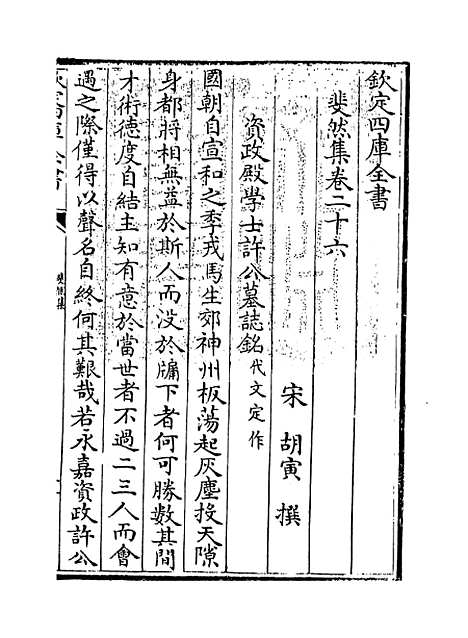 欽定四庫全書
斐然集卷二十六
宋 胡寅 撰
資政殿學士許公墓誌銘代文定作
國朝自宣和之季戎馬生郊神州板蕩起灰塵投天隙
身都將相無益於斯人而沒於牖下者何可勝數其間
才術德度自結主知有意於當世者不過二三人而會
遇之際僅得以聲名自終何其艱哉若永嘉資政許公
斐然集